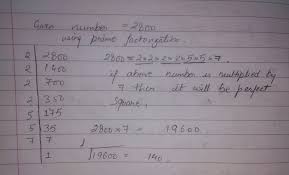 Given number = 2800
using prime factorization.
2 | 2800 2800 = 2×2×2×2×5×5×7
2 | 1400 if above number is multiplied by
2 | 700 7 then it will be perfect
2 | 350 square,
5 | 175
5 | 35 2800×7 = 19600
7 | 7
1 √19600 = 140